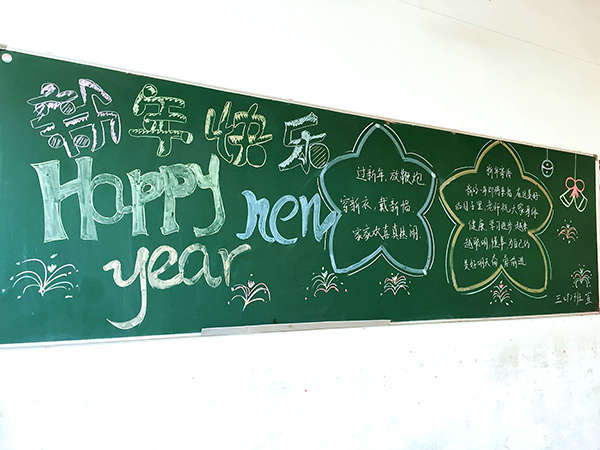 新年快乐
Happy new
year
过新年,放鞭炮
穿新衣,戴新帽
家家欢喜真热闹
新年寄语
在这美好
的日子里,老师祝大家身体
健康,学习进步,越来
越聪明懂事,为自己的
美好明天 前进
班宣